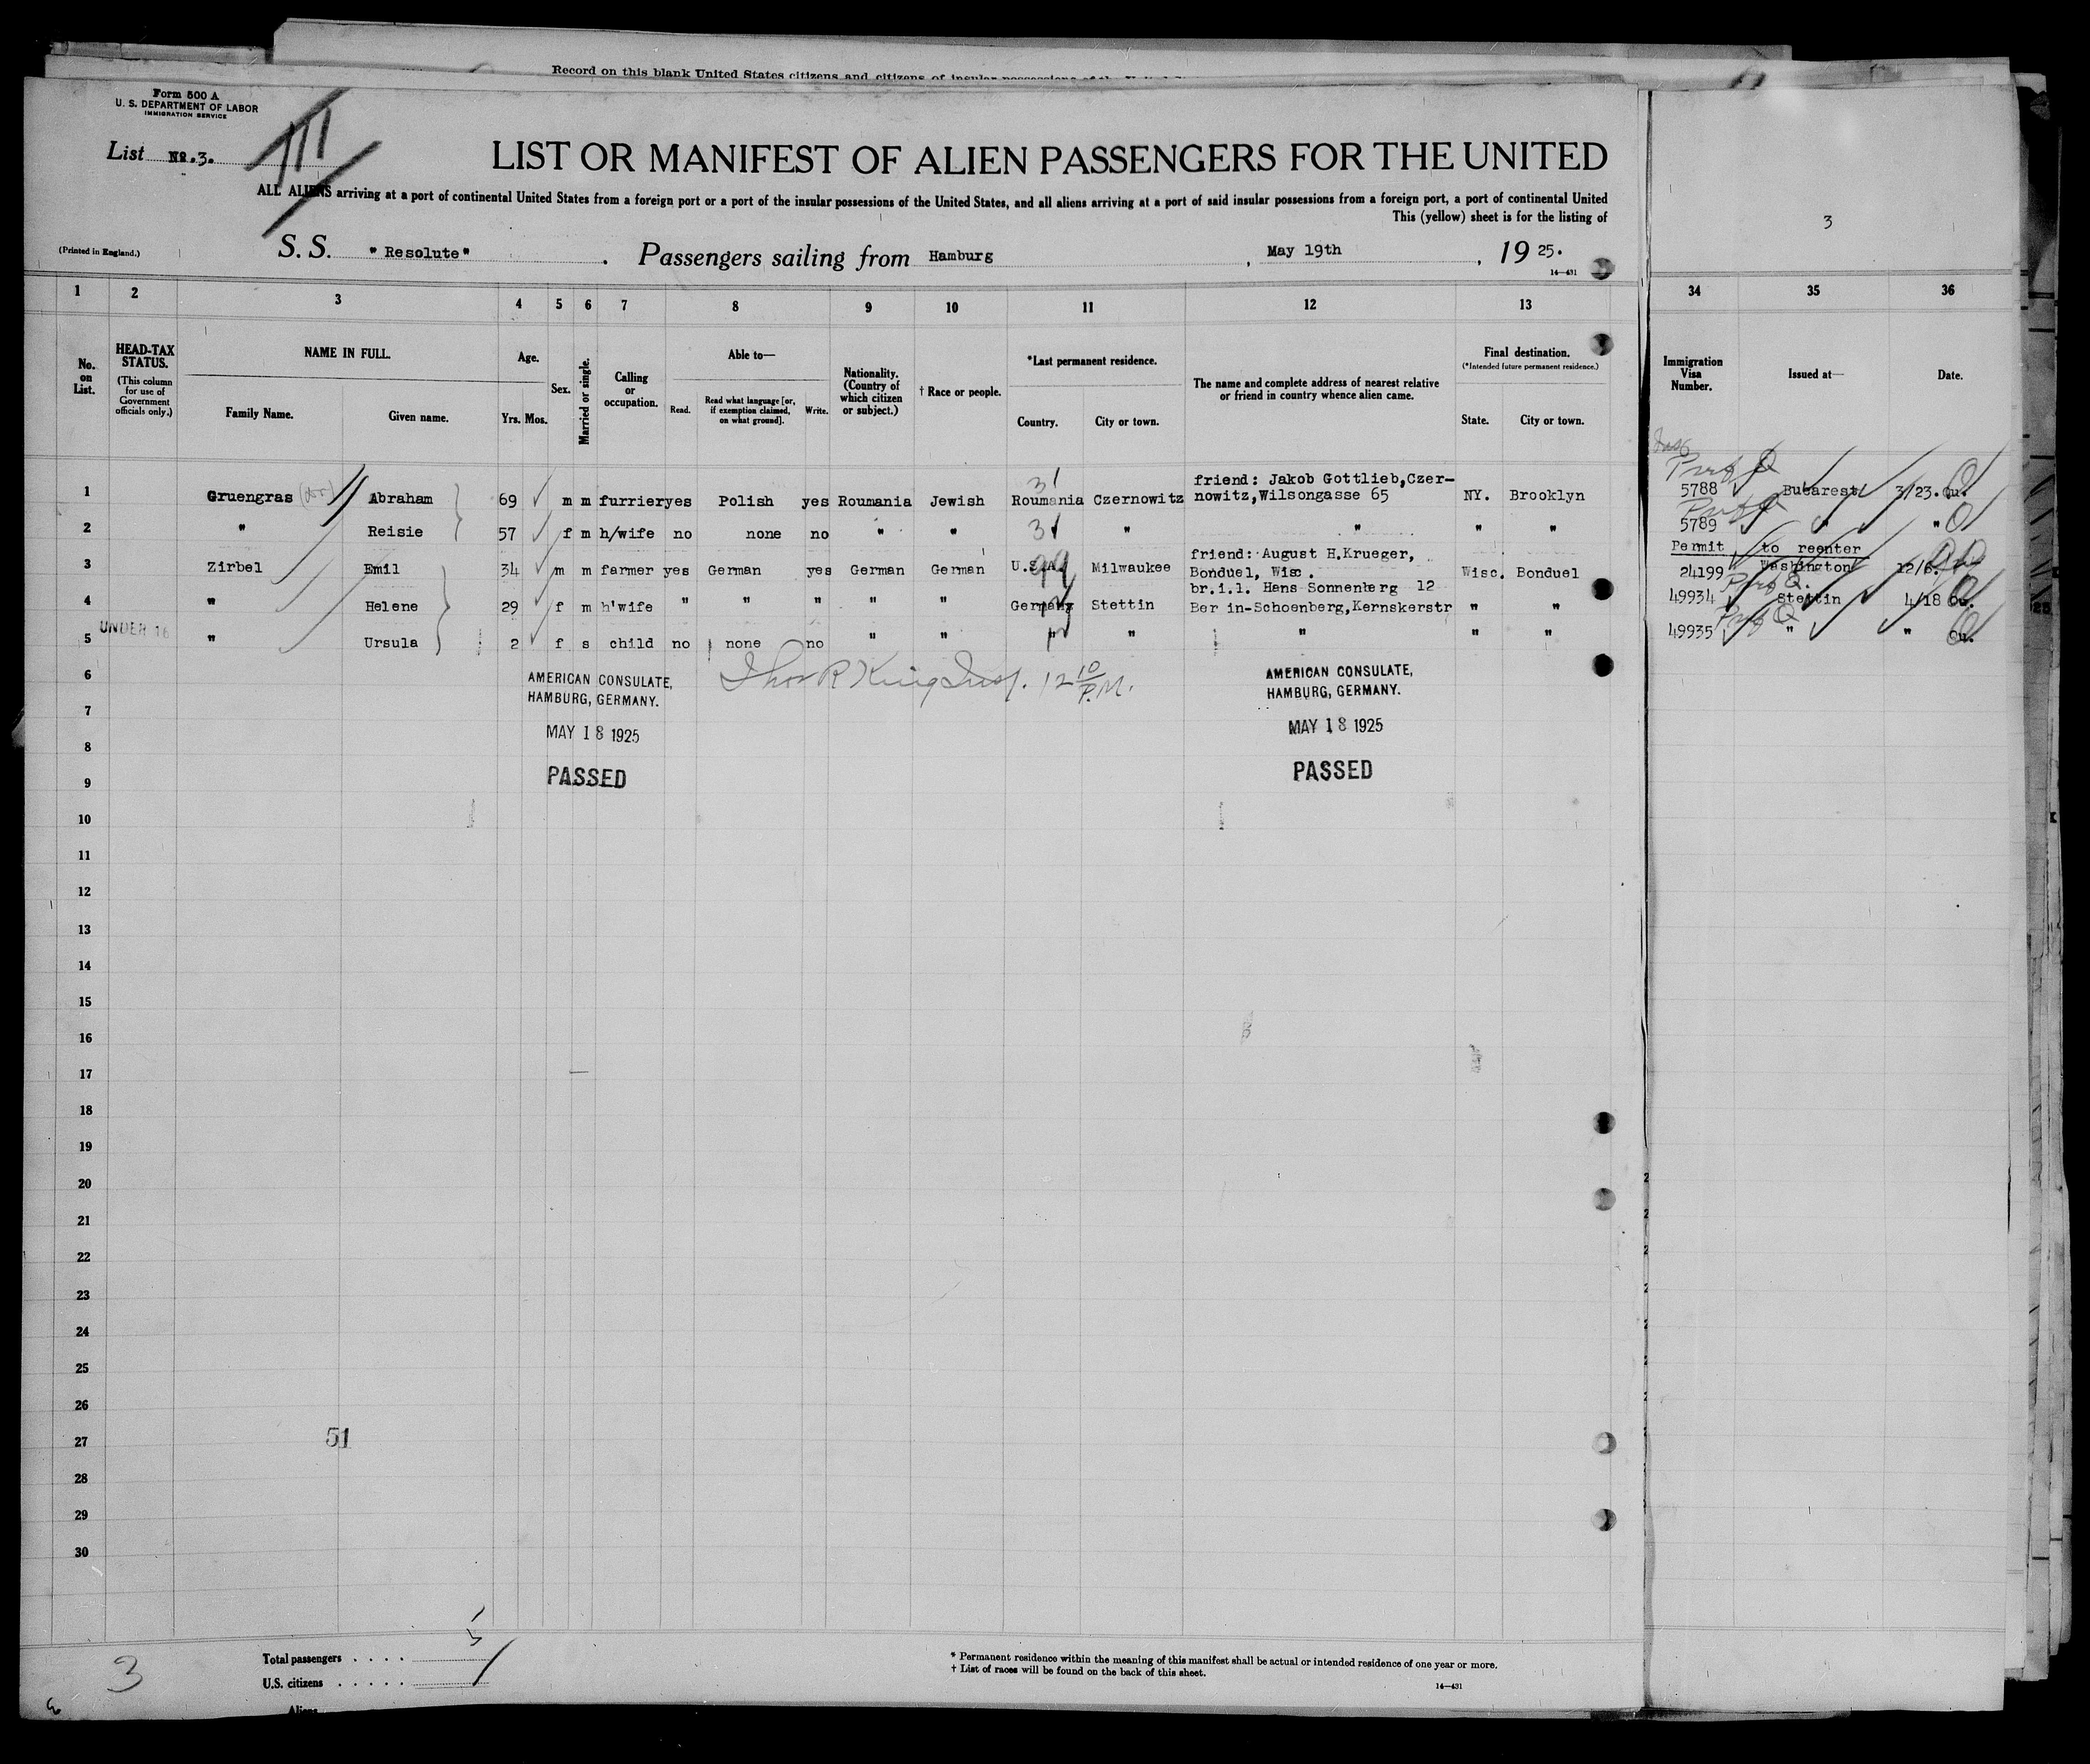 Record on this blank United States citizens and citizens of insular possessions
Form 500 A
U. S. DEPARTMENT OF LABOR
IMMIGRATION SERVICE
List No. 3.
III
LIST OR MANIFEST OF ALIEN PASSENGERS FOR THE UNITED
ALL ALIENS arriving at a port of continental United States from a foreign port or a port of the insular possessions of the United States, and all aliens arriving at a port of said insular possessions from a foreign port, a port of continental United
This (yellow) sheet is for the listing of
3
(Printed in England.)
S. S. "Resolute". Passengers sailing from Hamburg, May 19th, 19 25.
14—431
1 2 3 4 5 6 7 8 9 10 11 12 13 34 35 36
No. on List.
HEAD-TAX STATUS.
(This column for use of Government officials only.)
NAME IN FULL.
Family Name. Given name.
Age.
Yrs. Mos.
Sex.
Married or single.
Calling or occupation.
Able to—
Read. Read what language [or, if exemption claimed, on what ground]. Write.
Nationality. (Country of which citizen or subject.)
† Race or people.
*Last permanent residence.
Country. City or town.
The name and complete address of nearest relative or friend in country whence alien came.
Final destination.
(*Intended future permanent residence.)
State. City or town.
Immigration Visa Number.
Issued at—
Date.
1 Gruengras Abraham 69 m m furrier yes Polish yes Roumania Jewish 31 Roumania Czernowitz friend: Jakob Gottlieb,Czer-
nowitz,Wilsongasse 65 NY. Brooklyn 5788 Bucarest 3/23. Qu.
2 " Reisie 57 f m h/wife no none no " " 31 " " " " 5789 " "
3 Zirbel Emil 34 m m farmer yes German yes German German U.S.A. 99 Milwaukee friend: August H.Krueger,
Bonduel, Wisc. Wisc. Bonduel Permit to reenter
24199 Washington 12/6.
4 " Helene 29 f m h'wife " " " " " Germany Stettin br.i.l. Hans Sonnenberg 12
Ber in-Schoenberg,Kernskerstr " " 49934 Stettin 4/18 Qu.
UNDER 16
5 " Ursula 2 f s child no none no " " " " " " " 49935 " " Qu.
6
AMERICAN CONSULATE,
HAMBURG, GERMANY.
MAY 18 1925
PASSED
Thos R King Insp. 12 10/P.M.
AMERICAN CONSULATE,
HAMBURG, GERMANY.
MAY 18 1925
PASSED
7
8
9
10
11
12
13
14
15
16
17
18
19
20
21
22
23
24
25
26
27
51
28
29
30
3
Total passengers . . . . 5
U.S. citizens . . . . .
Aliens
* Permanent residence within the meaning of this manifest shall be actual or intended residence of one year or more.
† List of races will be found on the back of this sheet.
14—431